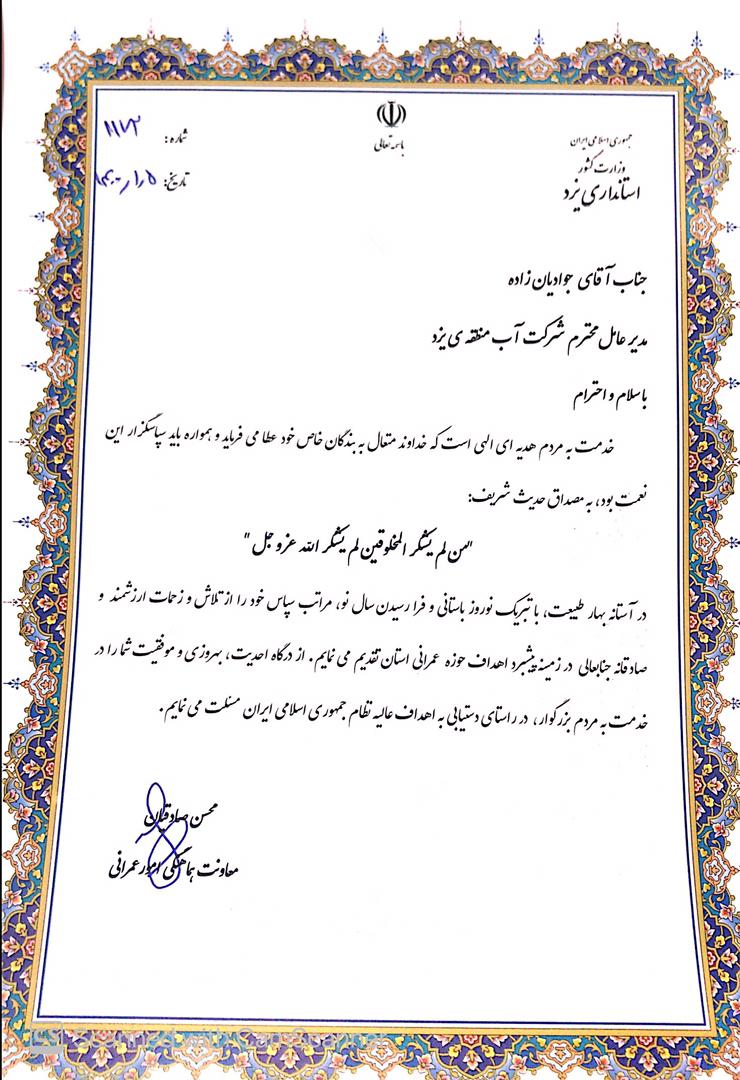 باسمه تعالی
جمهوری اسلامی ایران
وزارت کشور
استانداری یزد
شماره: ۱۱۷۳
تاریخ:
جناب آقای جوادیان زاده
مدیر عامل محترم شرکت آب منطقه ی یزد
باسلام و احترام
خدمت به مردم هدیه ای الهی است که خداوند متعال به بندگان خاص خود عطا می فرماید و همواره باید سپاسگزار این
نعمت بود، به مصداق حدیث شریف:
"من لم یشکر المخلوقین لم یشکر الله عزوجل"
در آستانه بهار طبیعت، با تبریک نوروز باستانی و فرا رسیدن سال نو، مراتب سپاس خود را از تلاش و زحمات ارزشمند و
صادقانه جنابعالی در زمینه پیشبرد اهداف حوزه عمرانی استان تقدیم می نمایم. از درگاه احدیت، بهروزی و موفقیت شما را در
خدمت به مردم بزرگوار، در راستای دستیابی به اهداف عالیه نظام جمهوری اسلامی ایران مسئلت می نمایم.
محسن صادقیان
معاونت هماهنگی امور عمرانی
Scanned with CamScanner